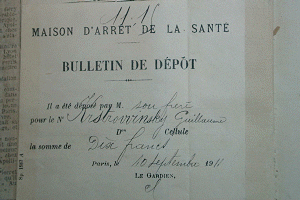 11-16
MAISON D'ARRÊT DE LA SANTÉ
BULLETIN DE DÉPÔT
Il a été déposé par M. son frère
pour le Nᵉ Kostrowinsky Guillaume
Dᵒⁿ Cellule
la somme de Dix francs
Paris, le 10 septembre 1911
LE GARDIEN,